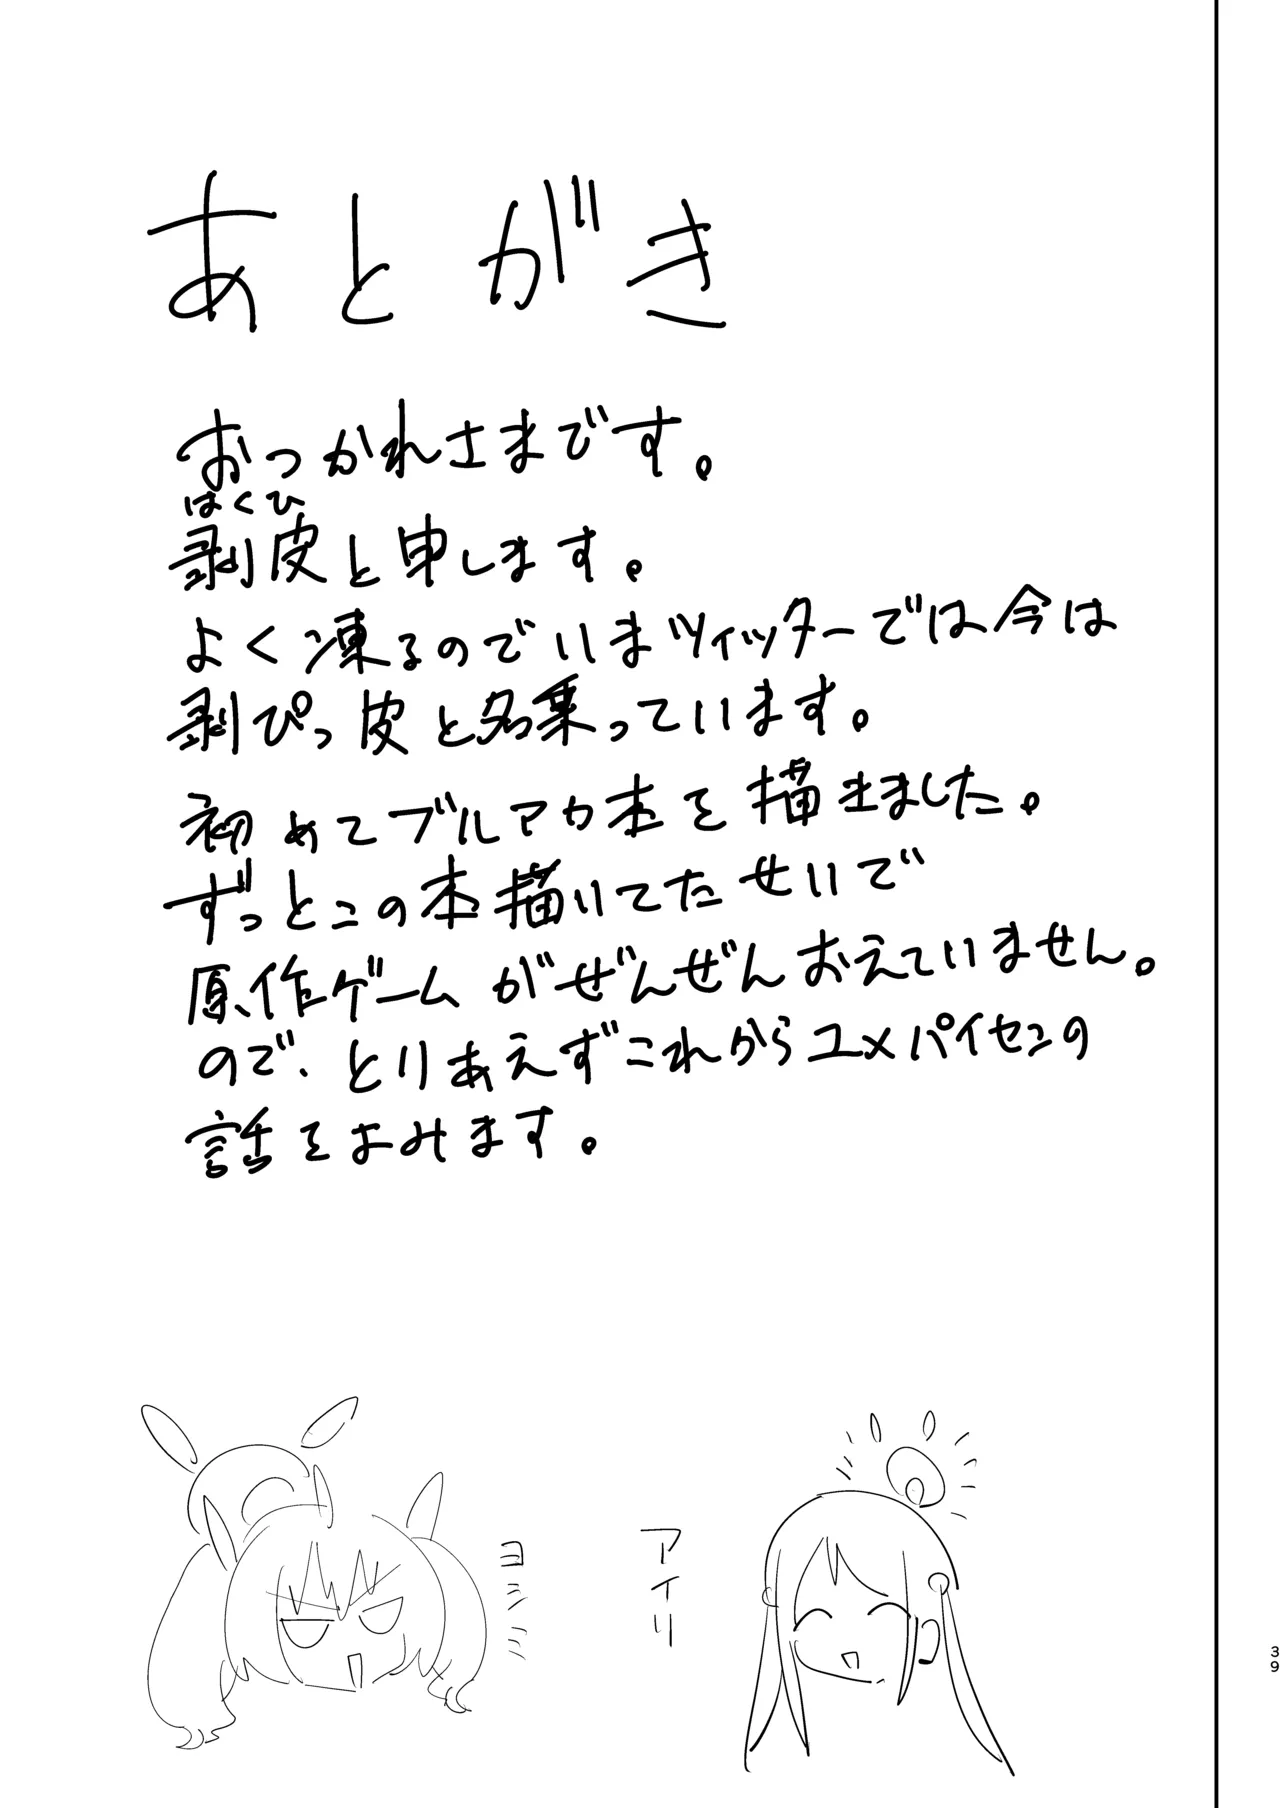 あとがき
おつかれさまです。
はくひ
剥皮と申します。
よく凍るのでいまツイッターでは今は
剥ぴっ皮と名乗っています。
初めてブルアカ本を描きました。
ずっとこの本描いてたせいで
原作ゲームがぜんぜんおえていません。
ので、とりあえずこれからユメパイセンの
話をよみます。
ヨシミ
アイリ
39